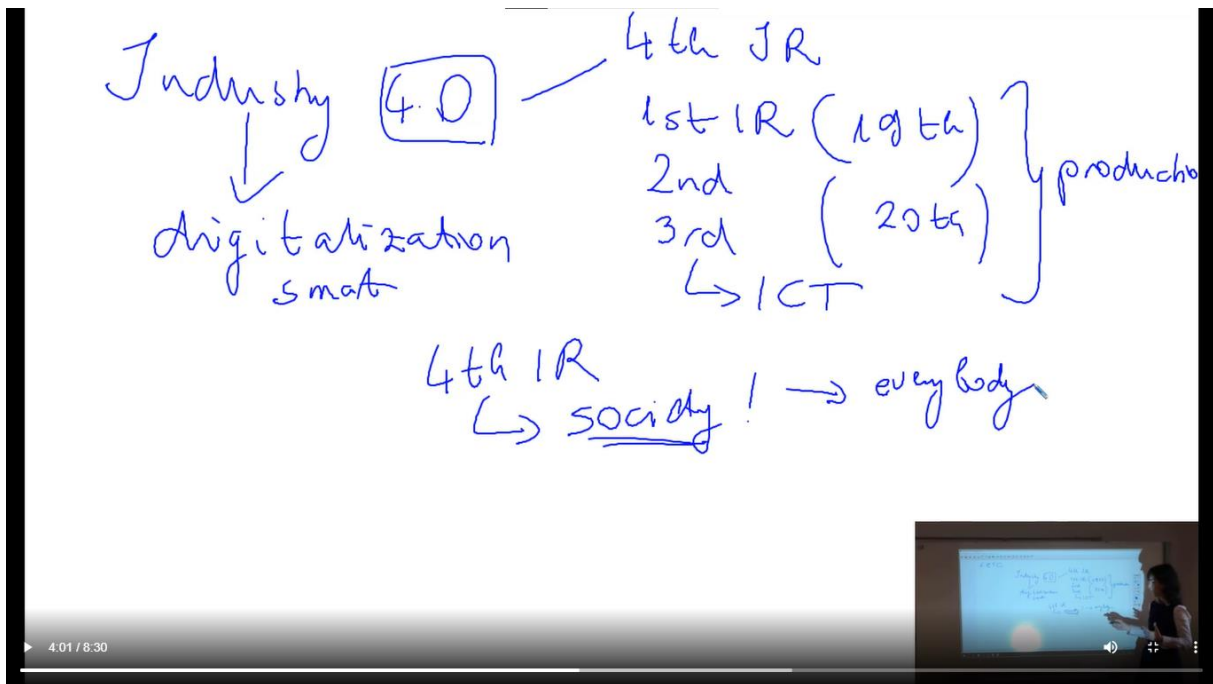 Industry 4.0
digitalization
smart
4th IR
1st IR (19th)
2nd
3rd (20th)
ICT
production
4th IR
society! → everybody
4:01 / 8:30